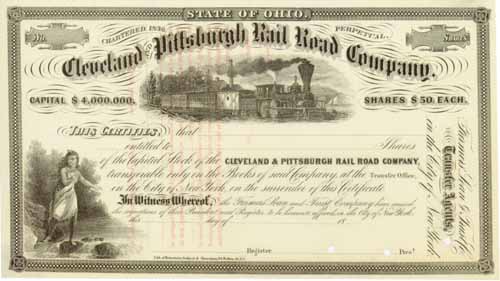 STATE OF OHIO.
No
CHARTERED 1836.
PERPETUAL.
Shares
Cleveland AND Pittsburgh Rail Road Company.
CAPITAL $4,000,000.
SHARES $50 EACH.
THIS CERTIFIES, that
entitled to Shares
of the Capital Stock of the CLEVELAND & PITTSBURGH RAIL ROAD COMPANY,
transferable only on the Books of said Company, at the Transfer Office,
in the City of New York, on the surrender of this Certificate
In Witness Whereof, the Farmers Loan and Trust Company have caused
the signatures of their President and Register to be hereunto affixed, in the City of New York
this day of 18
Register
Pres't
Transfer Agents,
in the City of New York